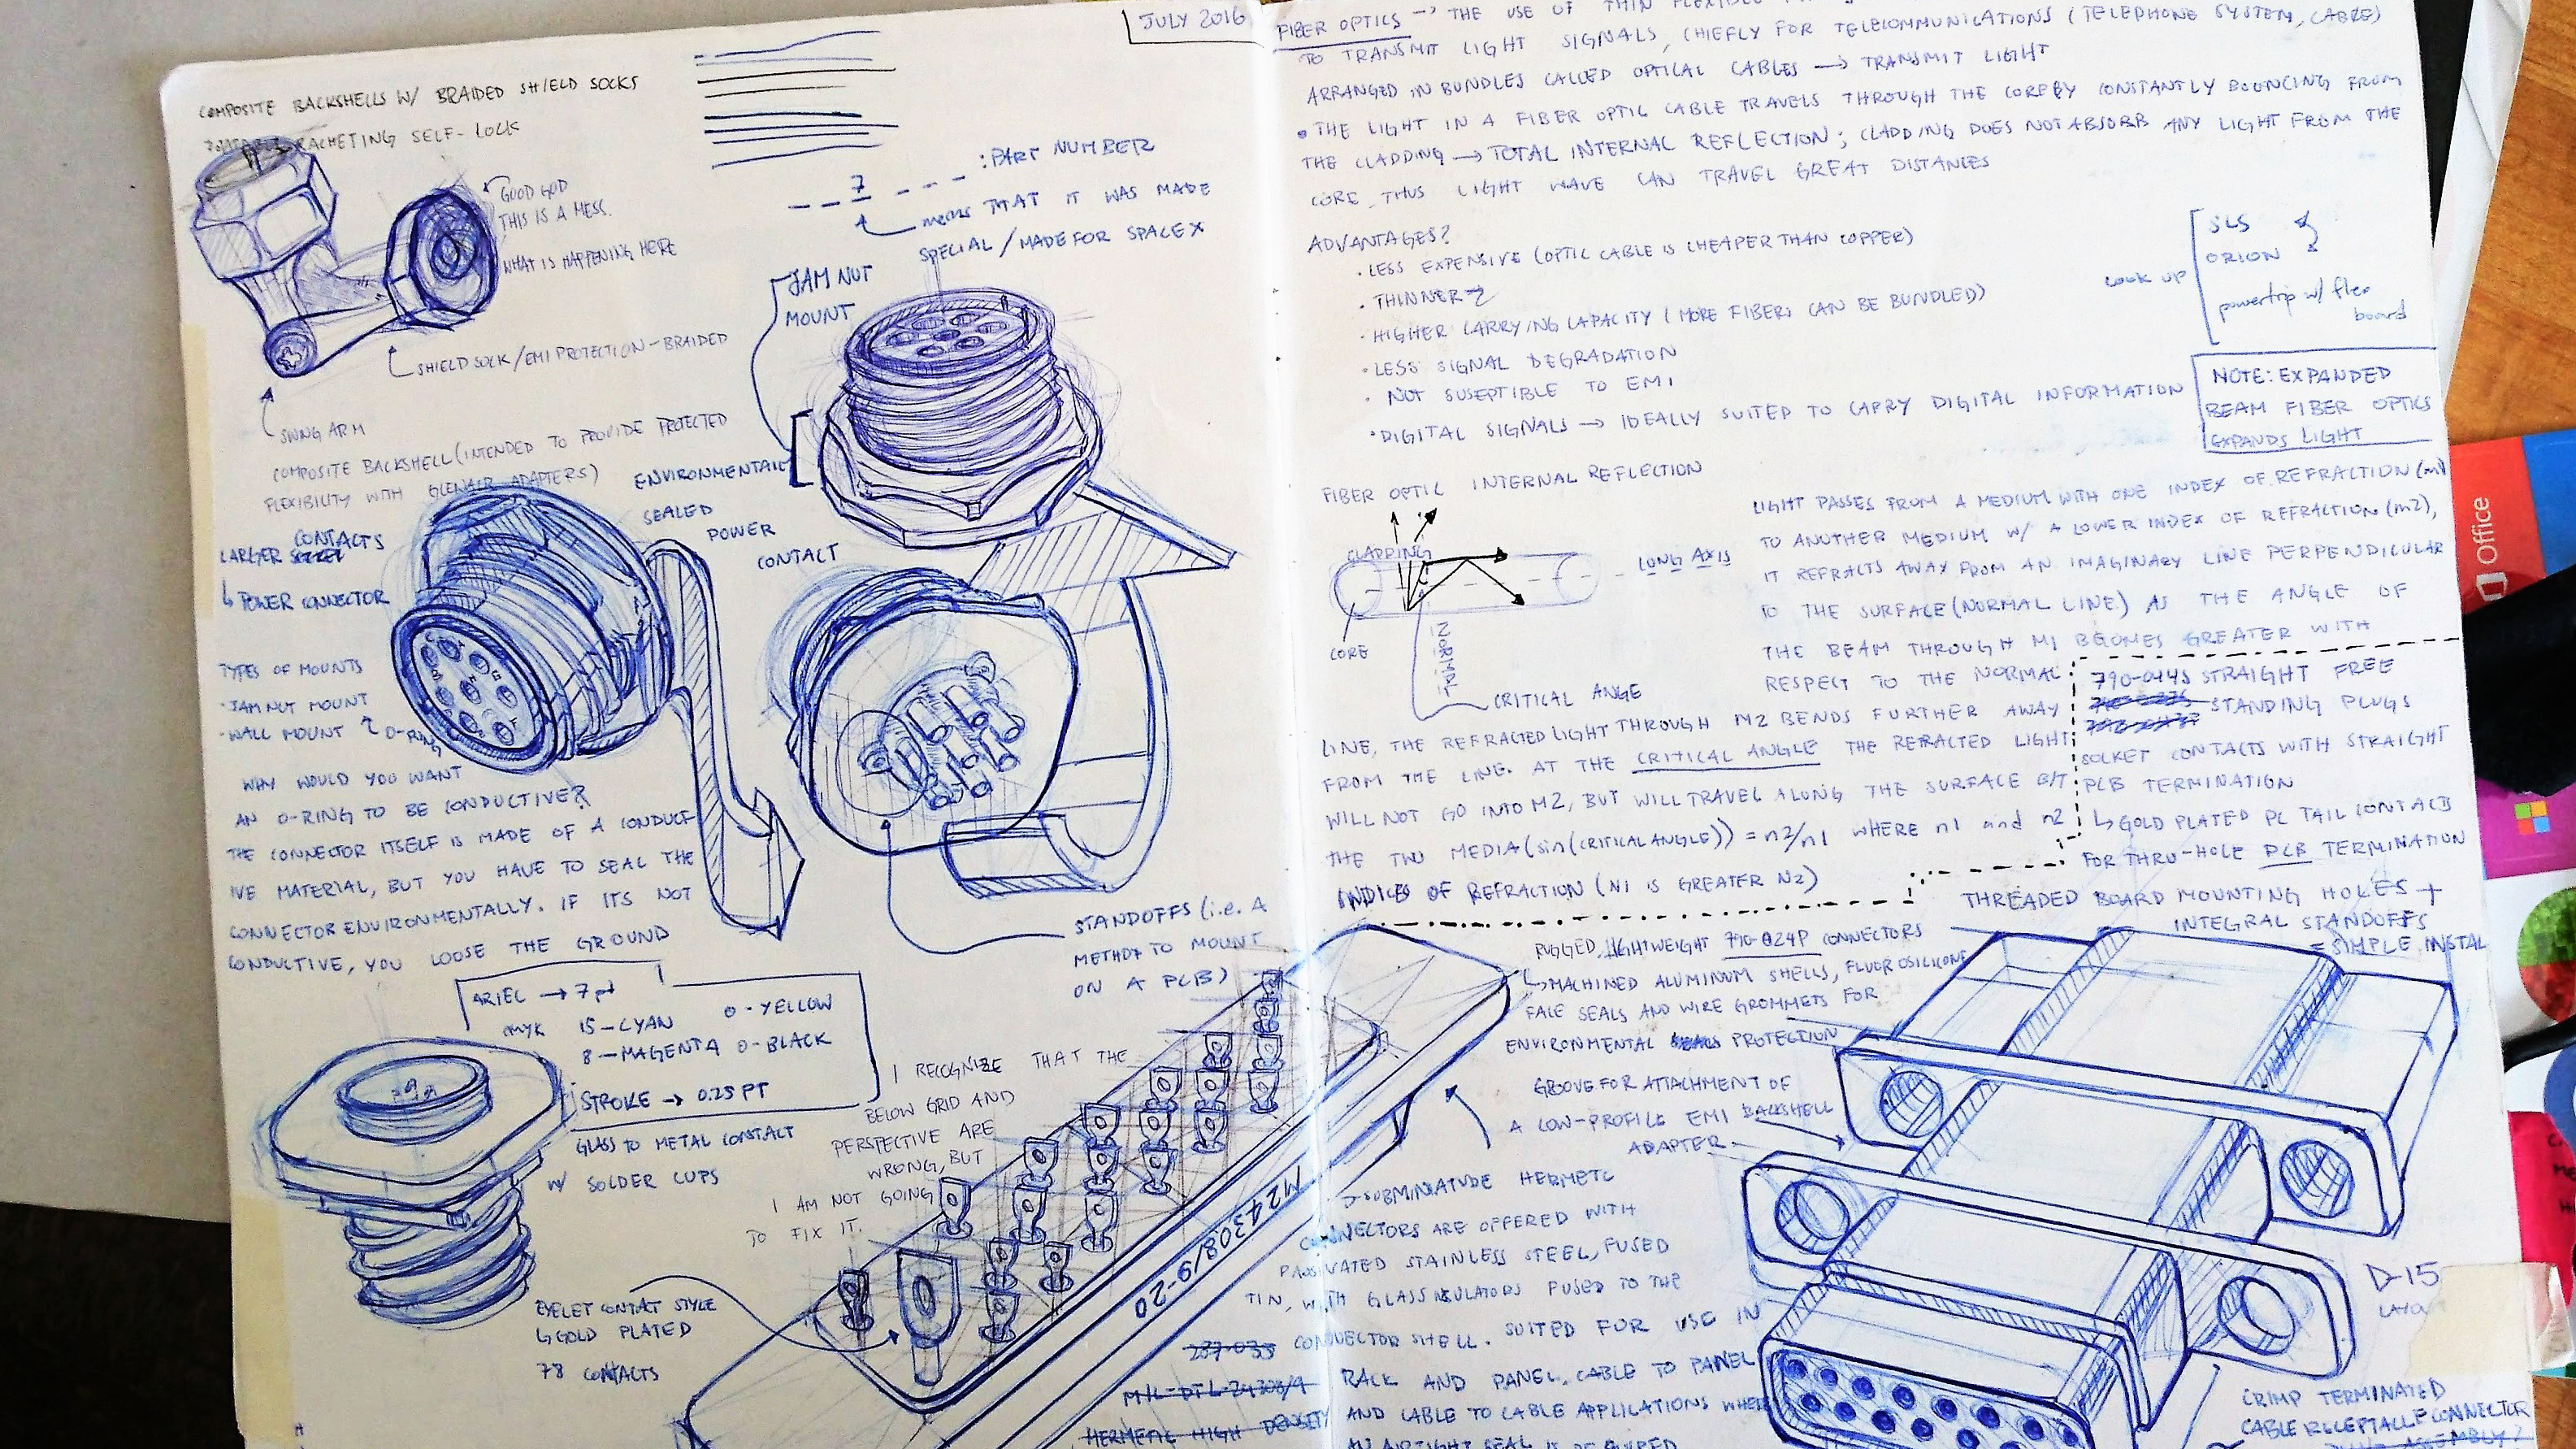 JULY 2016
COMPOSITE BACKSHELLS W/ BRAIDED SHIELD SOCKS
RACHETING SELF-LOCK
GOOD GOD
THIS IS A MESS.
WHAT IS HAPPENING HERE
SHIELD SOCK/EMI PROTECTION-BRAIDED
SWING ARM
COMPOSITE BACKSHELL (INTENDED TO PROVIDE PROTECTED
FLEXIBILITY WITH GLENAIR ADAPTERS)
7 : PART NUMBER
means THAT IT WAS MADE
SPECIAL/MADE FOR SPACEX
JAM NUT
MOUNT
ENVIRONMENTAL
SEALED
POWER
CONTACT
LARGER CONTACTS
↳ POWER CONNECTOR
TYPES OF MOUNTS
· JAM NUT MOUNT
· WALL MOUNT
O-RING
WHY WOULD YOU WANT
AN O-RING TO BE CONDUCTIVE?
THE CONNECTOR ITSELF IS MADE OF A CONDUCT
IVE MATERIAL, BUT YOU HAVE TO SEAL THE
CONNECTOR ENVIRONMENTALLY. IF ITS NOT
CONDUCTIVE, YOU LOOSE THE GROUND
STANDOFFS (i.e. A
METHOD TO MOUNT
ON A PCB)
ARIEL → 7 pt
CMYK 15-CYAN 0-YELLOW
8-MAGENTA 0-BLACK
STROKE → 0.25 PT
GLASS TO METAL CONTACT
W/ SOLDER CUPS
I RECOGNIZE THAT THE
BELOW GRID AND
PERSPECTIVE ARE
WRONG, BUT
I AM NOT GOING
TO FIX IT.
EYELET CONTACT STYLE
↳ GOLD PLATED
78 CONTACTS
M24308/9-20
FIBER OPTICS → THE USE OF THIN FLEXIBLE
TO TRANSMIT LIGHT SIGNALS, CHIEFLY FOR TELECOMMUNICATIONS (TELEPHONE SYSTEM, CABRE)
ARRANGED IN BUNDLES CALLED OPTICAL CABLES → TRANSMIT LIGHT
• THE LIGHT IN A FIBER OPTIC CABLE TRAVELS THROUGH THE CORE BY CONSTANTLY BOUNCING FROM
THE CLADDING → TOTAL INTERNAL REFLECTION; CLADDING DOES NOT ABSORB ANY LIGHT FROM THE
CORE, THUS LIGHT WAVE CAN TRAVEL GREAT DISTANCES
ADVANTAGES?
· LESS EXPENSIVE (OPTIC CABLE IS CHEAPER THAN COPPER)
· THINNER
· HIGHER CARRYING CAPACITY (MORE FIBERS CAN BE BUNDLED)
· LESS SIGNAL DEGRADATION
· NOT SUSEPTIBLE TO EMI
· DIGITAL SIGNALS → IDEALLY SUITED TO CARRY DIGITAL INFORMATION
LOOK UP
SLS
ORION
powertrip w/ flex
board
NOTE: EXPANDED
BEAM FIBER OPTICS
EXPANDS LIGHT
FIBER OPTIC INTERNAL REFLECTION
CLADDING
LONG AXIS
CORE
NORMAL
CRITICAL ANGE
LIGHT PASSES FROM A MEDIUM WITH ONE INDEX OF REFRACTION (m1)
TO ANOTHER MEDIUM W/ A LOWER INDEX OF REFRACTION (m2),
IT REFRACTS AWAY FROM AN IMAGINARY LINE PERPENDICULAR
TO THE SURFACE (NORMAL LINE) AS THE ANGLE OF
THE BEAM THROUGH M1 BECOMES GREATER WITH
RESPECT TO THE NORMAL
LINE, THE REFRACTED LIGHT THROUGH M2 BENDS FURTHER AWAY
FROM THE LINE. AT THE CRITICAL ANGLE THE REFRACTED LIGHT
WILL NOT GO INTO M2, BUT WILL TRAVEL ALONG THE SURFACE B/T
THE TWO MEDIA (sin(CRITICAL ANGLE)) = n2/n1 WHERE n1 and n2
INDICES OF REFRACTION (N1 IS GREATER N2)
790-044S STRAIGHT FREE
STANDING PLUGS
SOCKET CONTACTS WITH STRAIGHT
PCB TERMINATION
↳ GOLD PLATED PC TAIL CONTACTS
FOR THRU-HOLE PCB TERMINATION
THREADED BOARD MOUNTING HOLES +
INTEGRAL STANDOFFS
= SIMPLE INSTAL
RUGGED, LIGHTWEIGHT 790-024P CONNECTORS
↳ MACHINED ALUMINUM SHELLS, FLUOROSILICONE
FACE SEALS AND WIRE GROMMETS FOR
ENVIRONMENTAL PROTECTION
GROOVE FOR ATTACHMENT OF
A LOW-PROFILE EMI BACKSHELL
ADAPTER
SUBMINIATURE HERMETC
CONNECTORS ARE OFFERED WITH
PASSIVATED STAINLESS STEEL, FUSED
TIN, WITH GLASS INSULATORS FUSED TO THE
CONNECTOR SHELL. SUITED FOR USE IN
RACK AND PANEL, CABLE TO PANEL
AND CABLE TO CABLE APPLICATIONS WHERE
AN AIRTIGHT SEAL IS REQUIRED
MIL-DTL-24308/9
HERMETIC HIGH DENSITY
D-15
CRIMP TERMINATED
CABLE RECEPTACLE CONNECTOR
Office